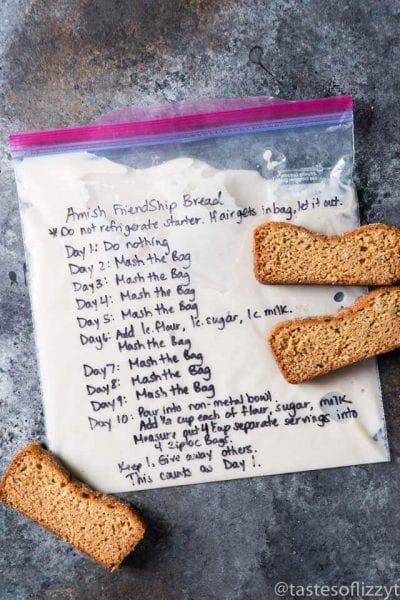 Amish Friendship Bread
* Do not refrigerate starter. If air gets in bag, let it out.
Day 1: Do nothing
Day 2: Mash the Bag
Day 3: Mash the Bag
Day 4: Mash the Bag
Day 5: Mash the Bag
Day 6: Add 1c. flour, 1c. sugar, 1c. milk.
Mash the Bag
Day 7: Mash the Bag
Day 8: Mash the Bag
Day 9: Mash the Bag
Day 10: Pour into non-metal bowl.
Add 1/2 cup each of flour, sugar, milk
Measure out 4 separate servings into
4 ziploc Bags.
Keep 1, Give away others.
This counts as Day 1.
@tastesoflizzyt